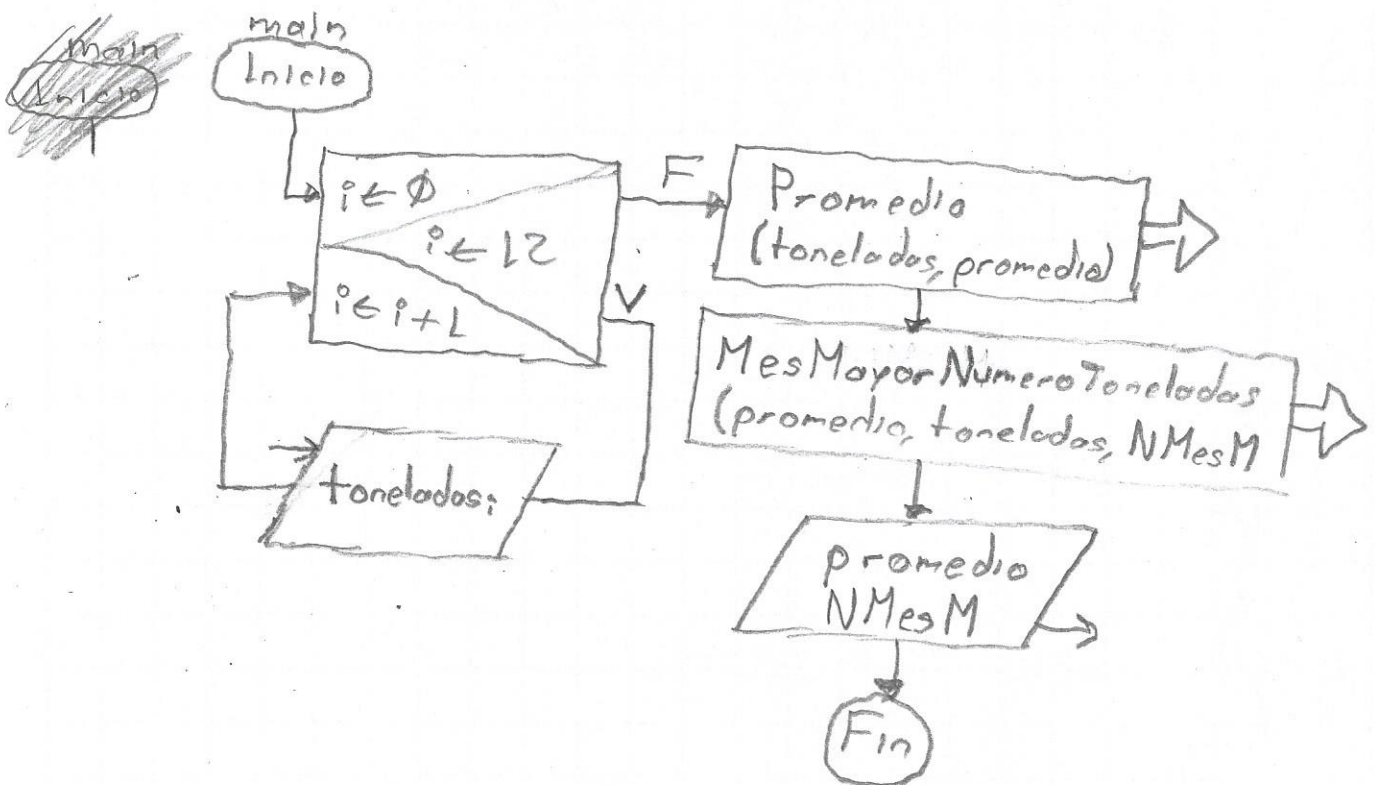 main
Inicio
main
Inicio
i ← Ø
i ← 12
i ← i + 1
F
V
toneladas i
Promedio
(toneladas, promedio)
MesMayorNumeroToneladas
(promedio, toneladas, NMesM
promedio
NMesM
Fin